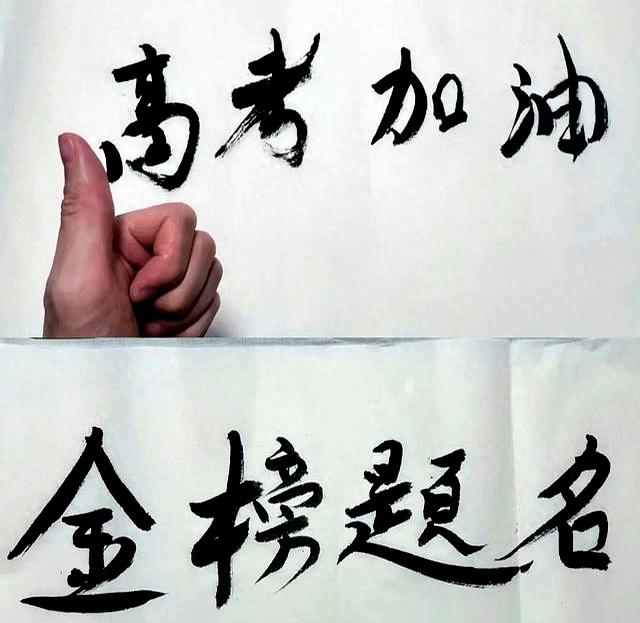 高考加油
金榜題名